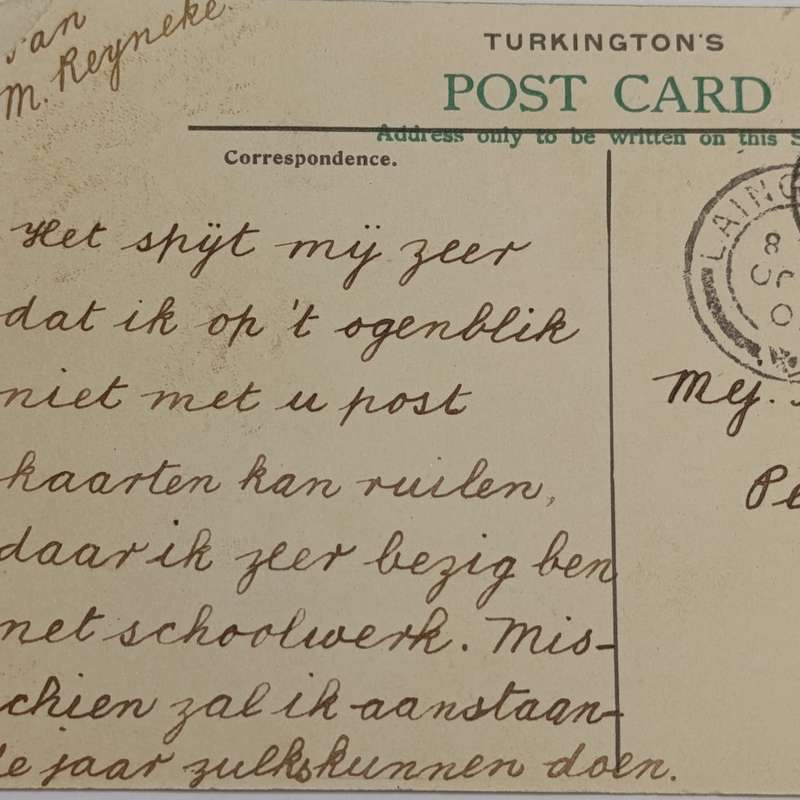 van
M. Reyneke.
TURKINGTON'S
POST CARD
Address only to be written on this S
Correspondence.
LAING
8
O
Het spijt mij zeer
dat ik op 't ogenblik
niet met u post
kaarten kan ruilen,
daar ik zeer bezig ben
met schoolwerk. Mis-
schien zal ik aanstaan-
de jaar zulks kunnen doen.
Mej.
Pe